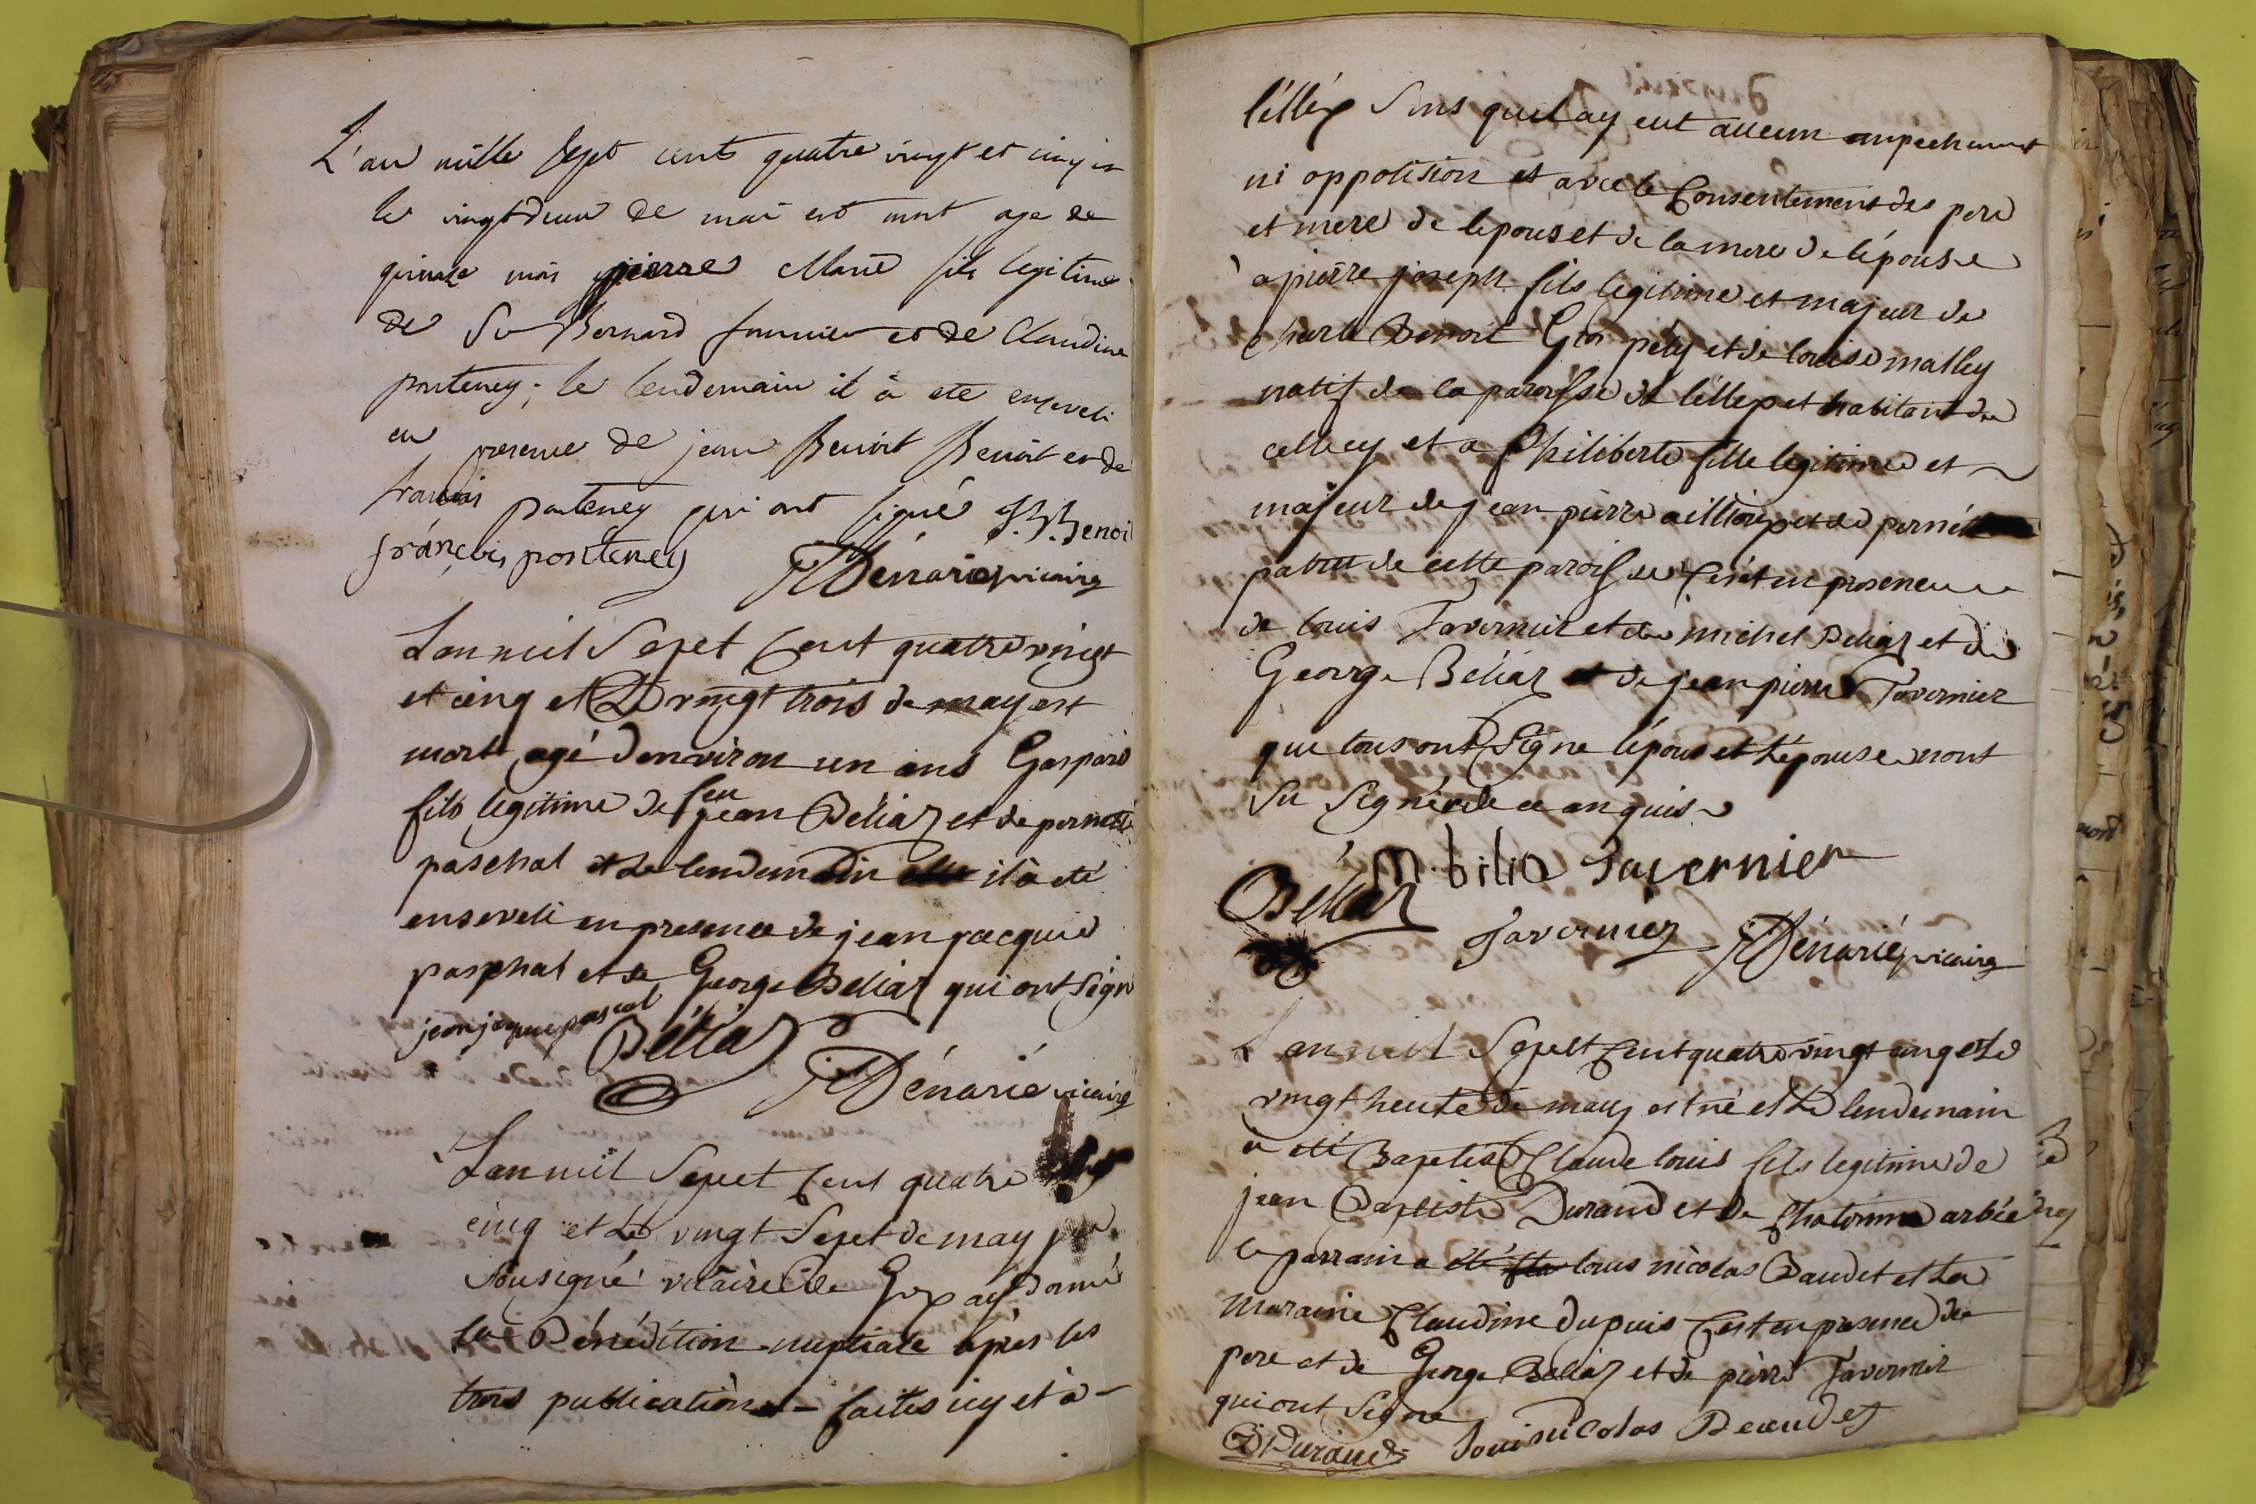 L'an mille sept cents quatre vingt et cinq
le vingt deux de mai est mort age de
quinze mois pierre Marie fils legitime
de Sr Bernard fournier et de Claudine
ponteney; le lendemain il à ete enseveli
en presence de jean Benoit Benoit et de
francois ponteney qui ont signé J. B. Benoi
françois ponteney Dénarié vicaire
Lan mil Sepet Cent quatre vingt
et cinq et Le vingt trois de may est
mort agé denviron un ans Gaspard
fils legitime de feu jean Béliaz et de pernette
paschal et Le lendemain il à eté
enseveli en presence de jean jacque
paschal et de George Beliaz qui ont Signé
jean jaque pascal Béliaz
Dénarié vicaire
Lan mil Sepet Cent quatre
cinq et Le vingt Sepet de may
sousigné vicaire de Gex ay Donné
la Bénédition nuptiale après les
trois publications faites icy et à
lélléx Sans quil ay eut aucun anpechement
ni oppolition et avec le Consentement des pere
et mere de lepous et de la mere de lépouse
a pierre joseph fils legitime et majeur de
Charle Benoit Gros pely et de louise malley
natif de la paroisse de lélléx et habitant de
celle cy et a Philiberte fille legitime et
majeur de jean pierre aillioux et de pernétte
de cette paroisse Cest en presence
de louis Tavernier et de michel Béliaz et de
George Béliaz et de jean pierre Tavernier
qui tous ont Signe lépous et Lépouse nont
Su Signé de ce anquis
Béliaz M. biliaz Tavernier
Tavernier Dénarié vicaire
Lan mil Sepet Cent quatre vingt cinq et Le
vingt heute de may est né et Le lendemain
à été Baptisé Claude louis fils legitime de
jean Baptiste Durand et de
le parrain a été louis nicolas Baudet et La
maraine Claudine dupuis Cest en presence de
pere et de George Béliaz et de pierre Tavernier
qui ont Signe
Durand louis nicolas Beaudet